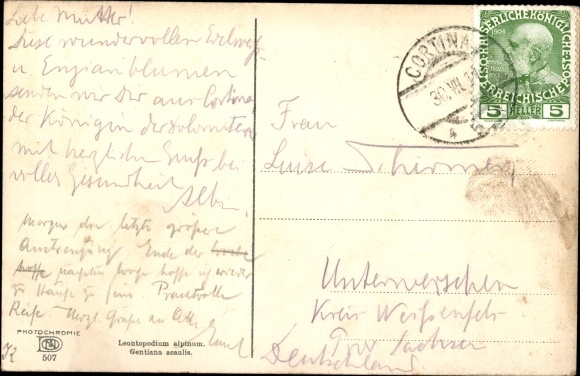 Liebe Mutter!
Diese wundervollen Edelweiß
u Enzianblumen
senden wir Dir aus Cortina
der Königin der Dolomiten
mit herzlichem Gruß bei
voller Gesundheit
Albin.
Morgen der letzte größere
Anstrengung Ende der
hoffe nächsten hoffe ich wieder
zu Hause zu sein
Reise Herzl. Grüße an alle
Emil
PHOTOCHROMIE
507
Leontopodium alpinum.
Gentiana acaulis.
KAISERLICHE KÖNIGLICHE
ÖSTERREICHISCHE
1908
5 HELLER 5
CORTINA
30.VII.
Frau
Luise Schirmer
Unterwerschen
Kreis Weißenfels
Prov Sachsen
Deutschland